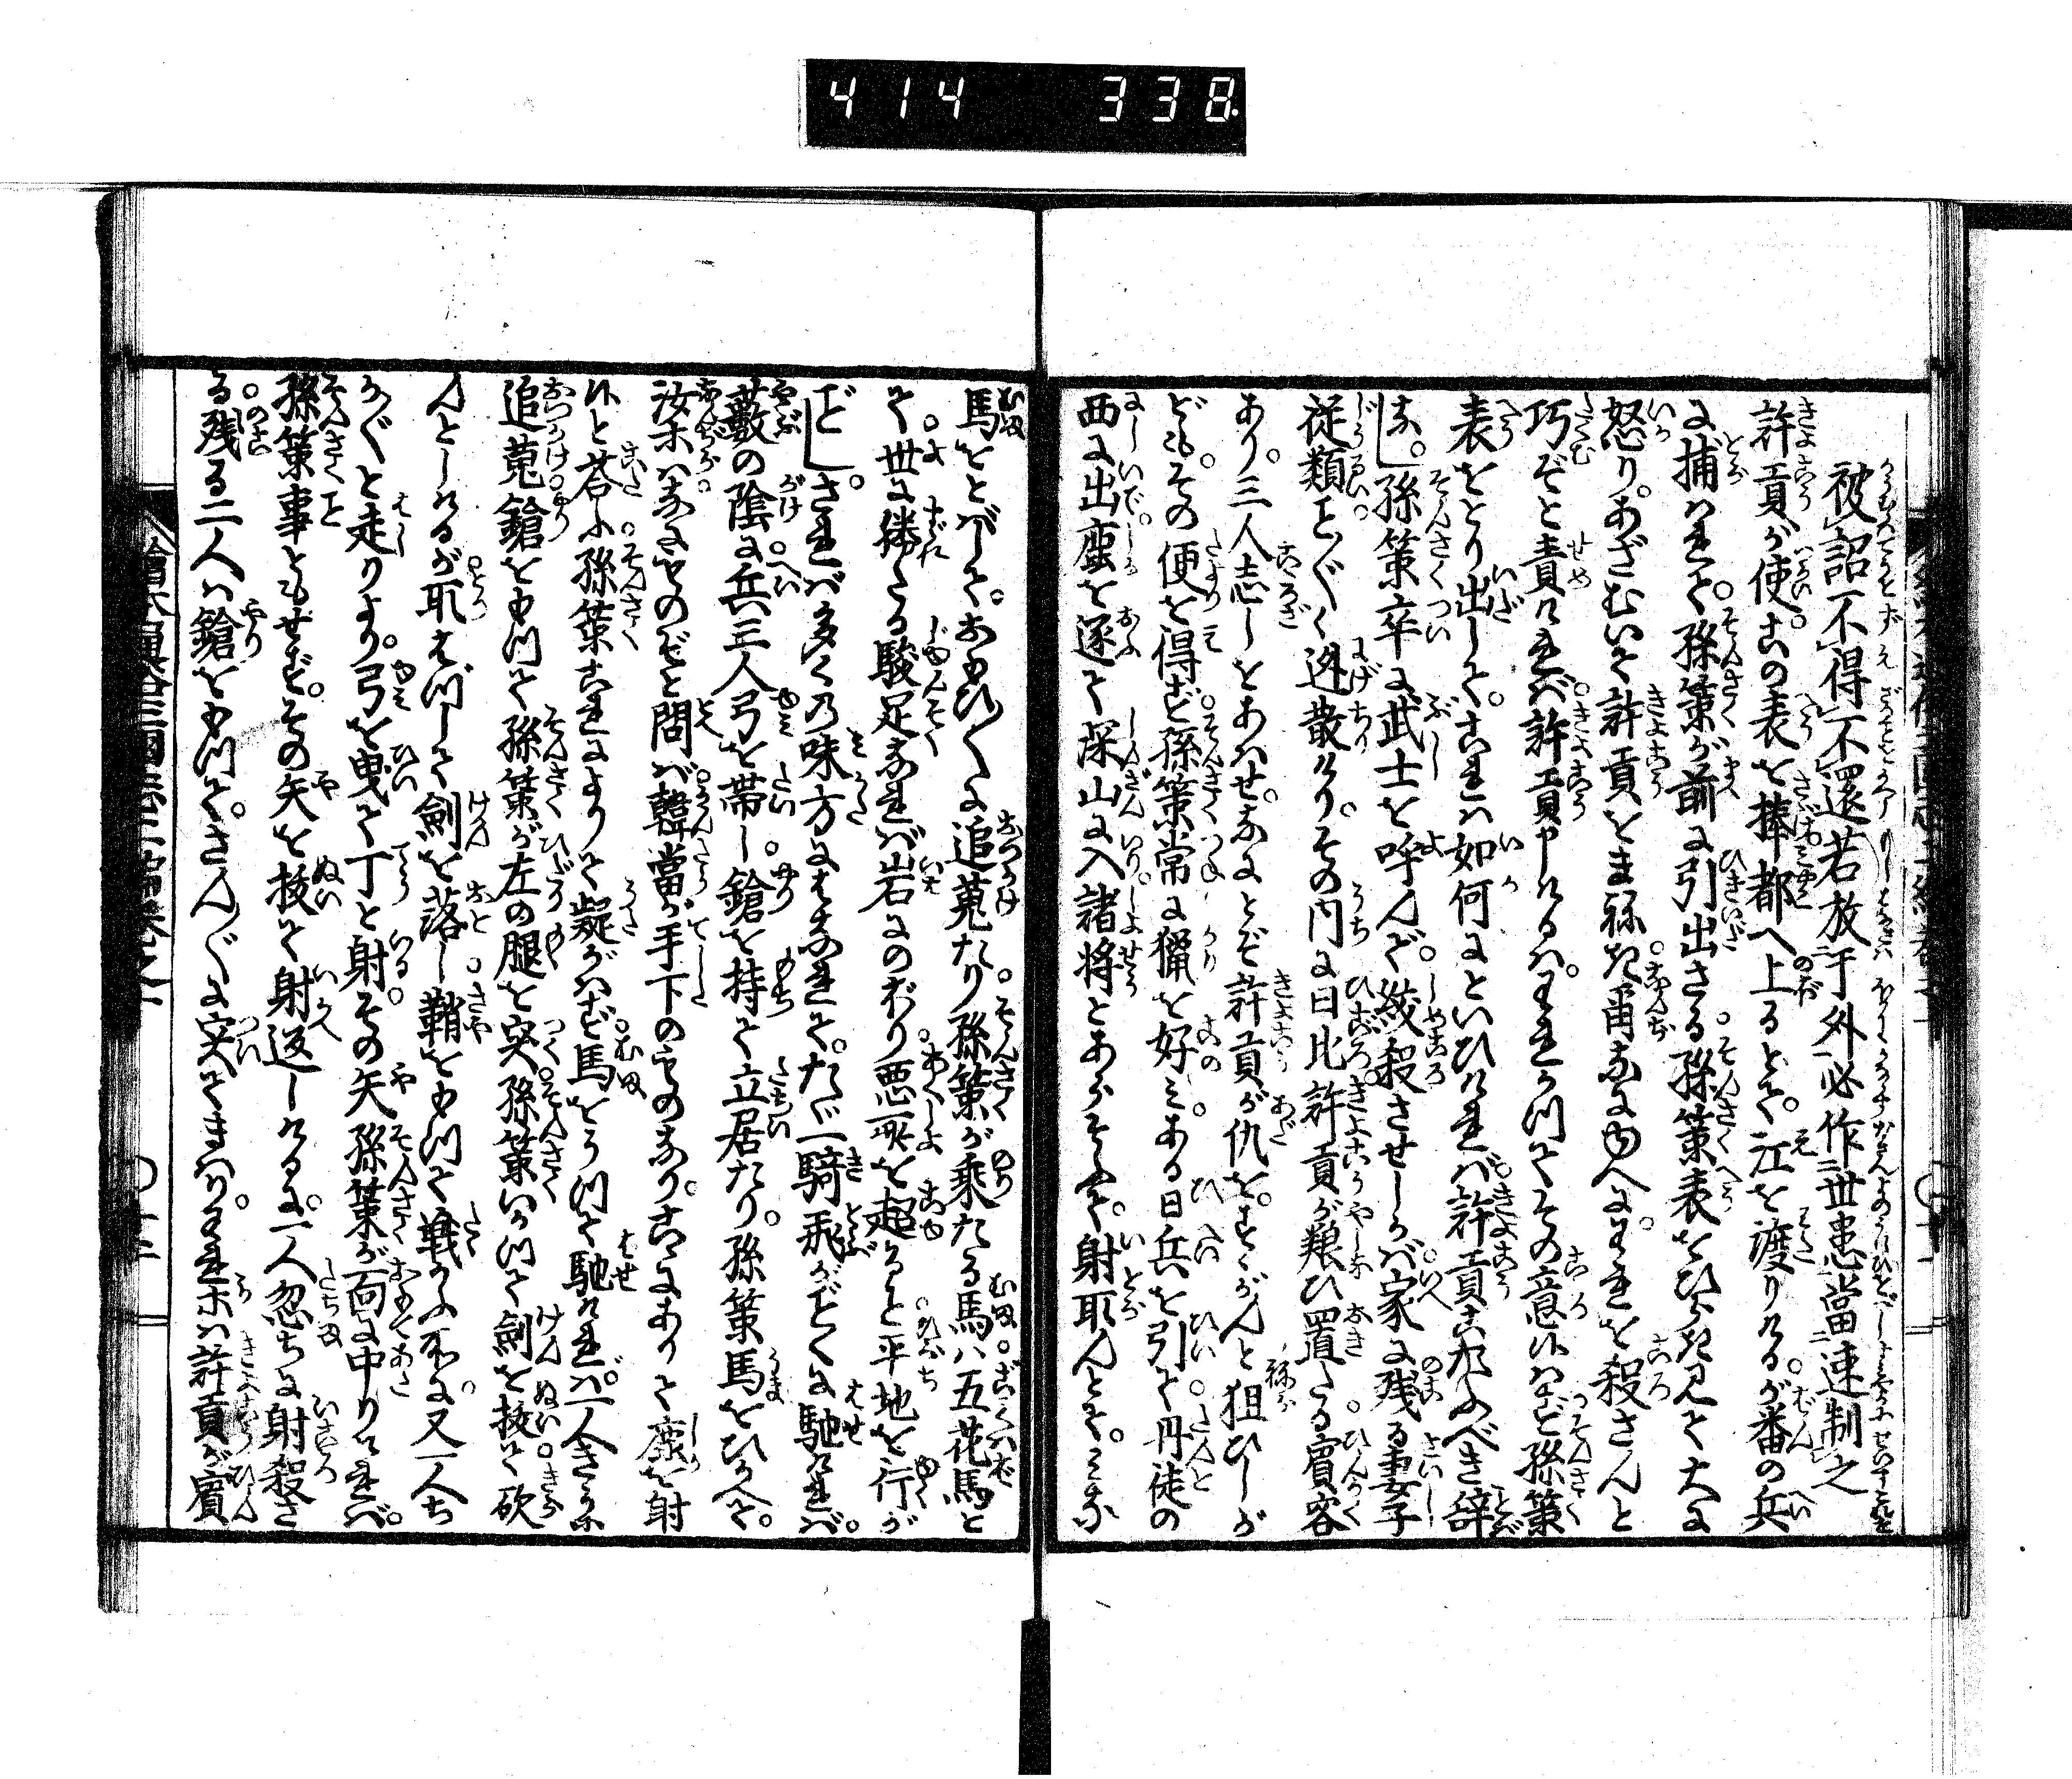 414 338
被詔不得不還若放于外必作世患當速制之
許貢が使この表を捧都へ上るとて江を渡りけるが番の兵
に捕はれて孫策が前に引出さる孫策表をひらき見て大に
怒りあざむいて許貢をまねき爾なにゆへにわれを殺さんと
巧ぞと責ければ許貢申けるはわれかつてその意候はず孫策
表をとり出してこれは如何にといひければ許貢こたふべき辞
なし孫策卒に武士を呼んで絞殺させしかば家に残る妻子
従類こと〴〵く迯散けりその内に日比許貢が養ひ置たる賓客
あり三人志しをあはせなにとぞ許貢が仇をすゝがんと狙ひしが
どもその便を得ず孫策常に猟を好みある日兵を引て丹徒の
西に出鹿を逐て深山に入諸将とあらそふて射取んとてみな
馬をとばしておもひ〳〵に追蒐たり孫策が乗たる馬は五花馬と
て世に勝たる駿足なれば岩にのぼり悪所を超ると平地を行が
ごとしされば多くの味方にはなれてたゞ一騎飛がごとくに馳ければ
藪の陰に兵三人弓を帯し鎗を持て立居たり孫策馬をひかへて
汝等はなにものぞと問ば韓當が手下のものなりこゝにありて鹿を射
候と荅ふ孫策これによりて疑がはず馬をうつて馳ければ一人さらに
追蒐鎗をもつて孫策が左の腿を突孫策いかつて劍を抜て砍
んとしけるが取はづして劍を落し鞘をもつて戦かふ所に又一人ち
かぐと走りより弓を曳て丁と射その矢孫策が面に中りければ
孫策事ともせずその矢を抜て射返しけるに一人忽ちに射殺さ
る残る二人は鎗をもつてさん〴〵に突てまはりわれ等は許貢が賓